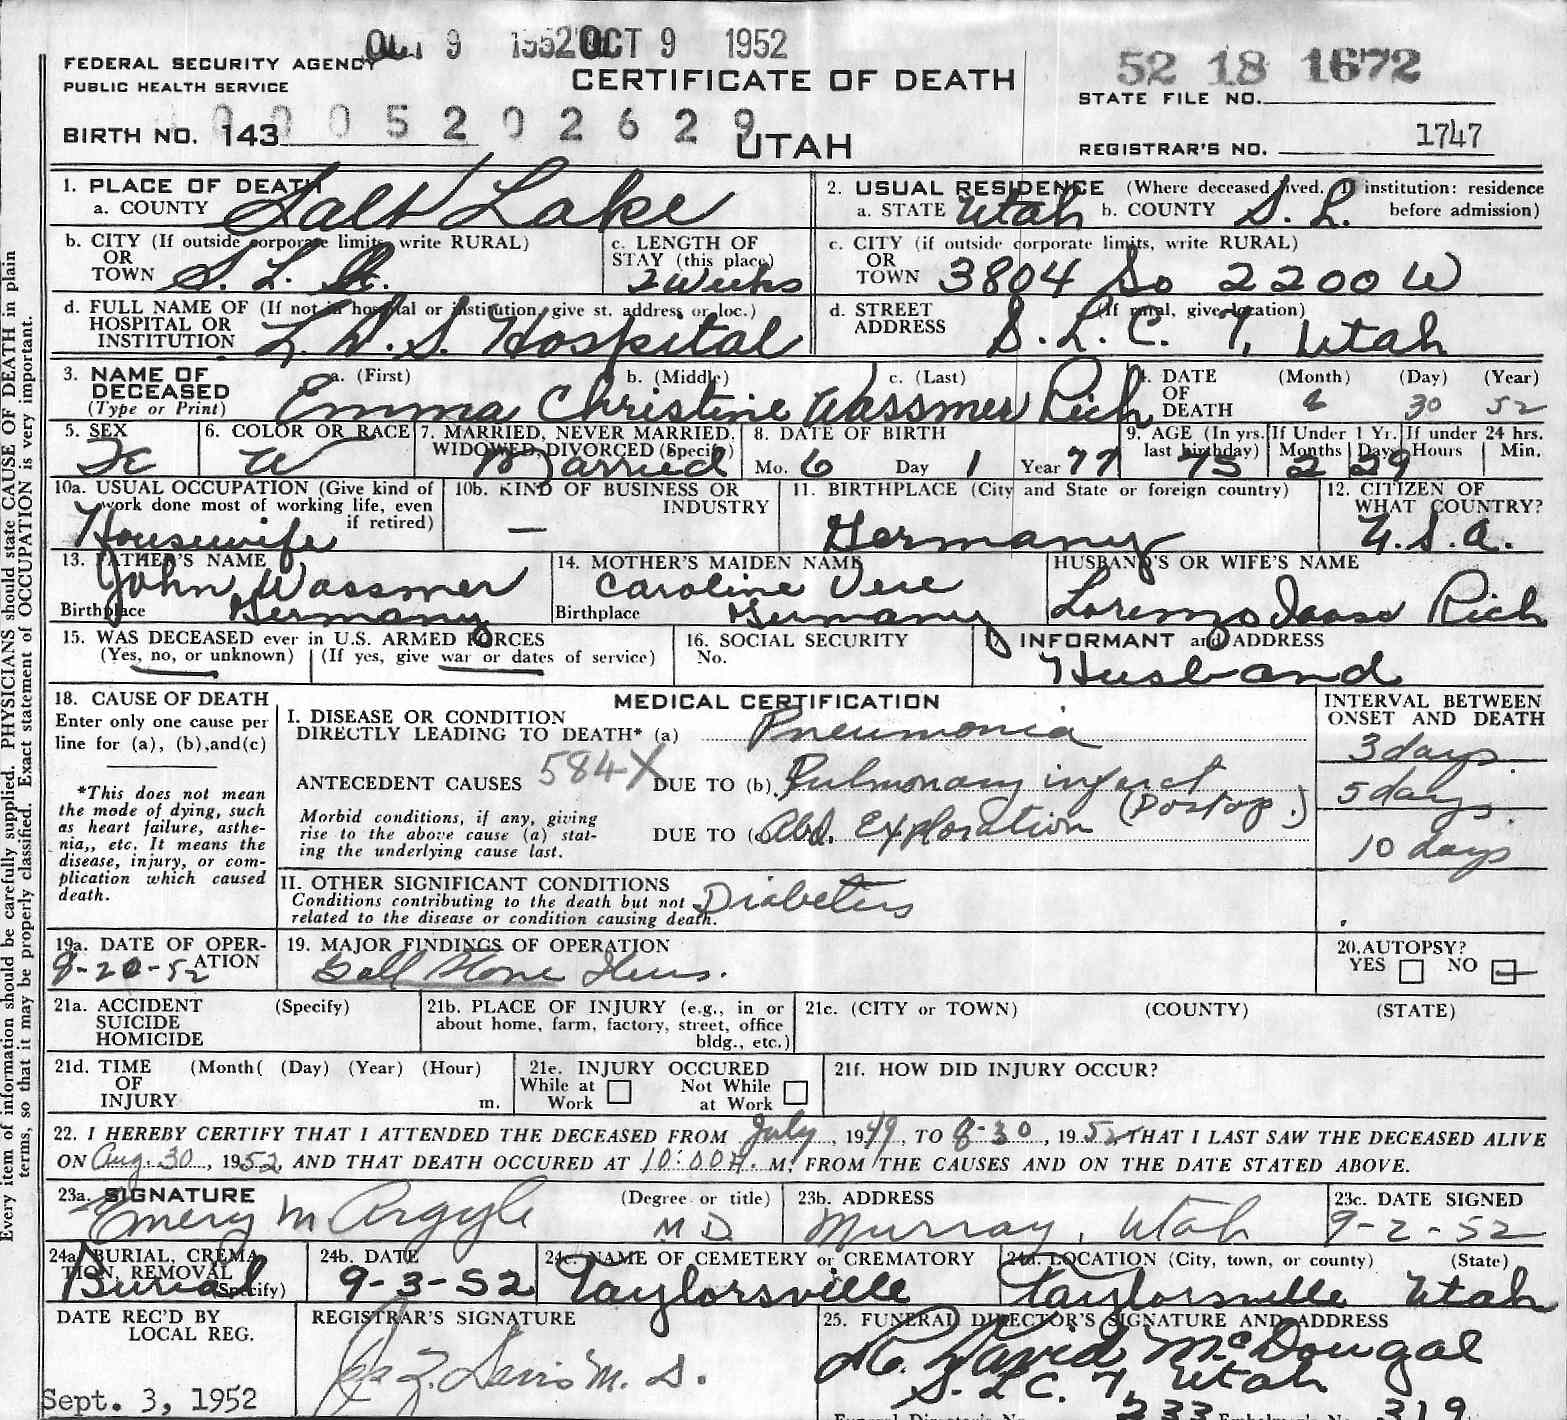 OCT 9 1952 OCT 9 1952
FEDERAL SECURITY AGENCY
PUBLIC HEALTH SERVICE
CERTIFICATE OF DEATH
52 18 1672
STATE FILE NO.
BIRTH NO. 143
0005202629
UTAH
1747
REGISTRAR'S NO.
1. PLACE OF DEATH
a. COUNTY Salt Lake
2. USUAL RESIDENCE (Where deceased lived. If institution: residence before admission)
a. STATE Utah b. COUNTY S. L.
b. CITY (If outside corporate limits, write RURAL)
OR
TOWN S. L.
c. LENGTH OF
STAY (this place)
2 Weeks
c. CITY (if outside corporate limits, write RURAL)
OR
TOWN 3804 So 2200 W
d. FULL NAME OF (If not in hospital or institution, give st. address or loc.)
HOSPITAL OR
INSTITUTION L. D. S. Hospital
d. STREET (If rural, give location)
ADDRESS S. L. C. 7, Utah
3. NAME OF
DECEASED
(Type or Print)
a. (First) b. (Middle) c. (Last)
Emma Christine Wassmer Rich
4. DATE
OF
DEATH
(Month) (Day) (Year)
8 30 52
5. SEX
Fe
6. COLOR OR RACE
W
7. MARRIED, NEVER MARRIED,
WIDOWED, DIVORCED (Specify)
Married
8. DATE OF BIRTH
Mo. 6 Day 1 Year 77
9. AGE (In yrs.
last birthday)
75
If Under 1 Yr.
Months Days
2 29
If under 24 hrs.
Hours Min.
10a. USUAL OCCUPATION (Give kind of
work done most of working life, even
if retired)
Housewife
10b. KIND OF BUSINESS OR
INDUSTRY
—
11. BIRTHPLACE (City and State or foreign country)
Germany
12. CITIZEN OF
WHAT COUNTRY?
U.S.A.
13. FATHER'S NAME
John Wassmer
Birthplace Germany
14. MOTHER'S MAIDEN NAME
Caroline
Birthplace Germany
HUSBAND'S OR WIFE'S NAME
Lorenzo Isaac Rich
15. WAS DECEASED ever in U.S. ARMED FORCES
(Yes, no, or unknown) (If yes, give war or dates of service)
16. SOCIAL SECURITY
No.
INFORMANT and ADDRESS
Husband
18. CAUSE OF DEATH
Enter only one cause per
line for (a), (b),and(c)
*This does not mean
the mode of dying, such
as heart failure, asthe-
nia,, etc. It means the
disease, injury, or com-
plication which caused
death.
MEDICAL CERTIFICATION
INTERVAL BETWEEN
ONSET AND DEATH
I. DISEASE OR CONDITION
DIRECTLY LEADING TO DEATH* (a) Pneumonia
3 days
ANTECEDENT CAUSES 584X DUE TO (b) Pulmonary infarct
5 days
Morbid conditions, if any, giving
rise to the above cause (a) stat-
ing the underlying cause last.
DUE TO (c) Abd. Exploration (Postop.)
10 days
II. OTHER SIGNIFICANT CONDITIONS
Conditions contributing to the death but not
related to the disease or condition causing death.
Diabetes
19a. DATE OF OPER-
ATION
8-20-52
19. MAJOR FINDINGS OF OPERATION
Gall Stone Ileus.
20. AUTOPSY?
YES NO
21a. ACCIDENT (Specify)
SUICIDE
HOMICIDE
21b. PLACE OF INJURY (e.g., in or
about home, farm, factory, street, office
bldg., etc.)
21c. (CITY or TOWN) (COUNTY) (STATE)
21d. TIME (Month( (Day) (Year) (Hour)
OF
INJURY m.
21e. INJURY OCCURED
While at Work Not While at Work
21f. HOW DID INJURY OCCUR?
22. I HEREBY CERTIFY THAT I ATTENDED THE DECEASED FROM July, 1949, TO 8-30, 1952 THAT I LAST SAW THE DECEASED ALIVE
ON Aug. 30, 1952, AND THAT DEATH OCCURED AT 10:00A. M, FROM THE CAUSES AND ON THE DATE STATED ABOVE.
23a. SIGNATURE (Degree or title)
Emery M. Argyle M.D.
23b. ADDRESS
Murray, Utah
23c. DATE SIGNED
9-2-52
24a. BURIAL, CREMA-
TION, REMOVAL
(Specify)
Burial
24b. DATE
9-3-52
24c. NAME OF CEMETERY or CREMATORY
Taylorsville
24d. LOCATION (City, town, or county) (State)
Taylorsville Utah
DATE REC'D BY
LOCAL REG.
Sept. 3, 1952
REGISTRAR'S SIGNATURE
Davis M. D.
25. FUNERAL DIRECTOR'S SIGNATURE AND ADDRESS
David McDougal
S. L. C. 7, Utah
233 319
Every item of information should be carefully supplied. PHYSICIANS should state CAUSE OF DEATH in plain
terms, so that it may be properly classified. Exact statement of OCCUPATION is very important.